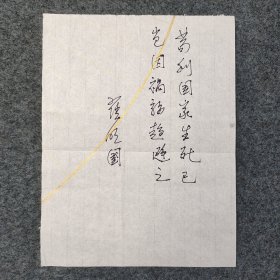 苟利国家生死已
岂因祸福趋避之